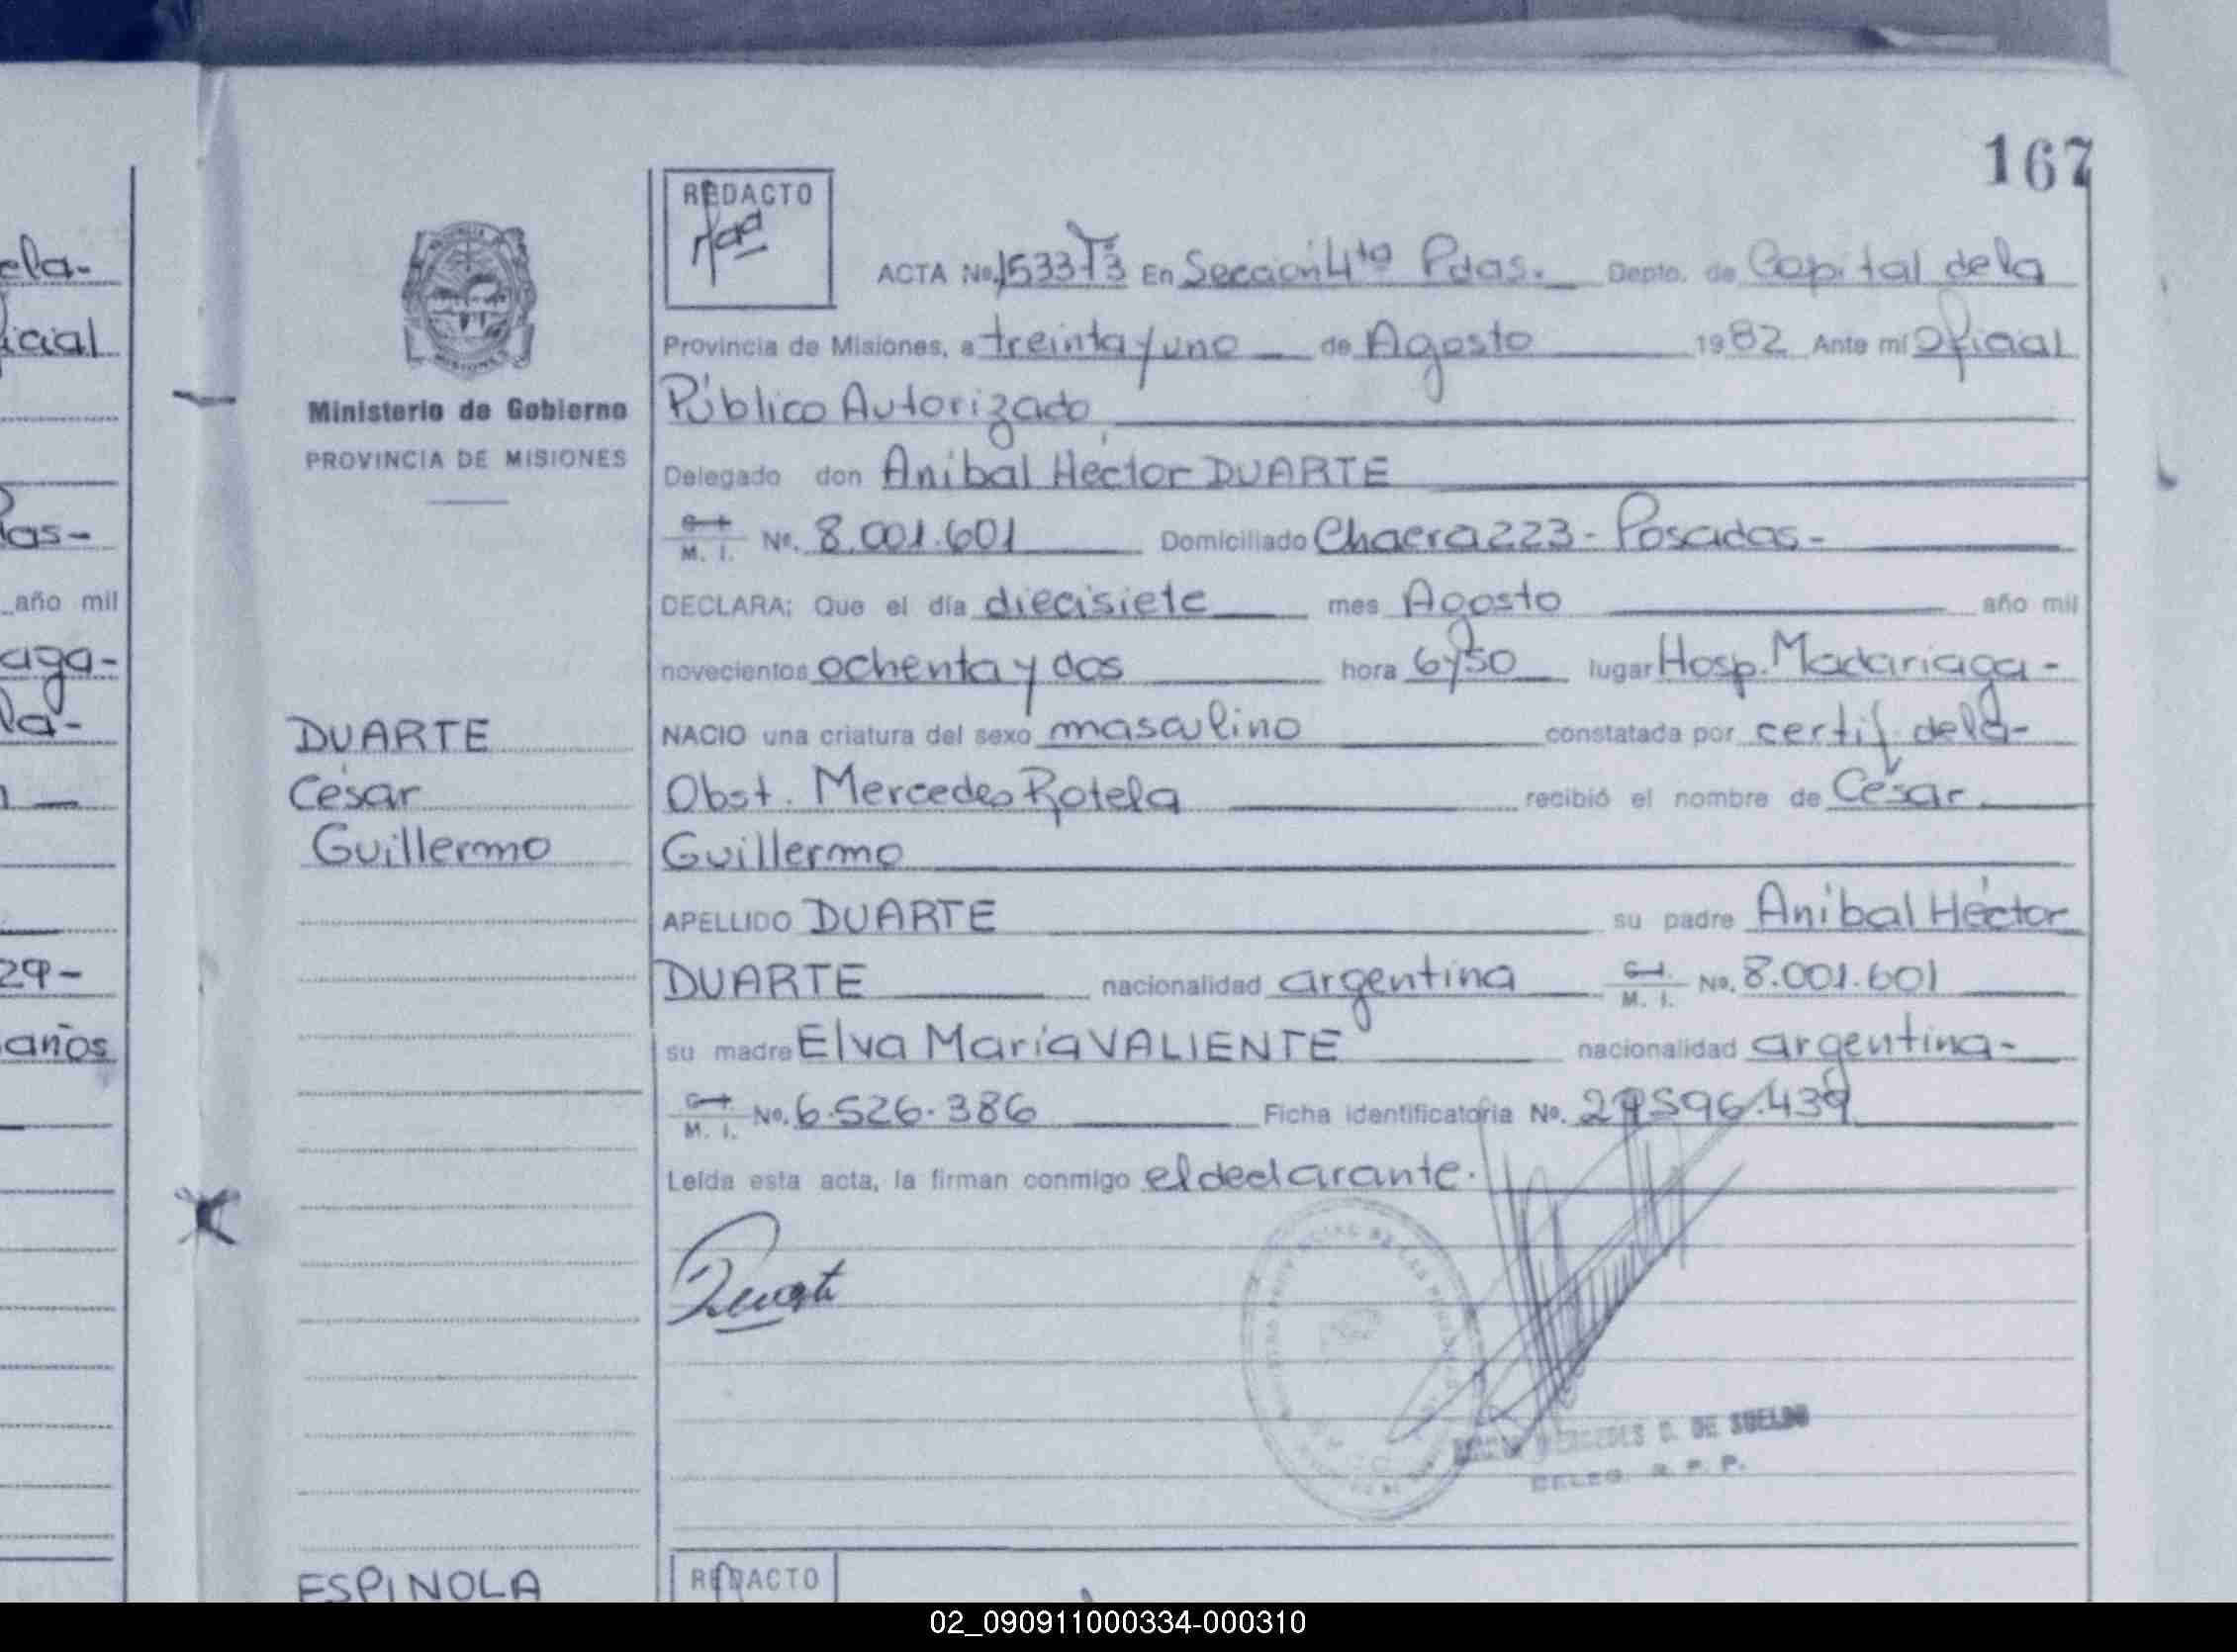 167
ela-
icial
as-
año mil
aga-
la-
29-
años
Ministerio de Gobierno
PROVINCIA DE MISIONES
DUARTE
César
Guillermo
ESPINOLA
REDACTO
ACTA No. 1533 T3 En Sección 4ta Pdas. Depto. de Capital de la
Provincia de Misiones, a treinta y uno de Agosto 1982 Ante mí Oficial
Público Autorizado
Delegado don Aníbal Héctor DUARTE
M. I. No. 8.001.601 Domiciliado Chacra 223 - Posadas -
DECLARA: Que el día diecisiete mes Agosto año mil
novecientos ochenta y dos hora 6y50 lugar Hosp. Madariaga -
NACIO una criatura del sexo masculino constatada por certif. de la -
Obst. Mercedes Rotela recibió el nombre de César
Guillermo
APELLIDO DUARTE su padre Aníbal Héctor
DUARTE nacionalidad argentina M. I. No. 8.001.601
su madre Elva María VALIENTE nacionalidad argentina -
M. I. No. 6.526.386 Ficha identificatoria No.
Leída esta acta, la firman conmigo el declarante.
Duarte
MERCEDES D. DE SUELDO
DELEG. R. P. P.
REDACTO
02_090911000334-000310